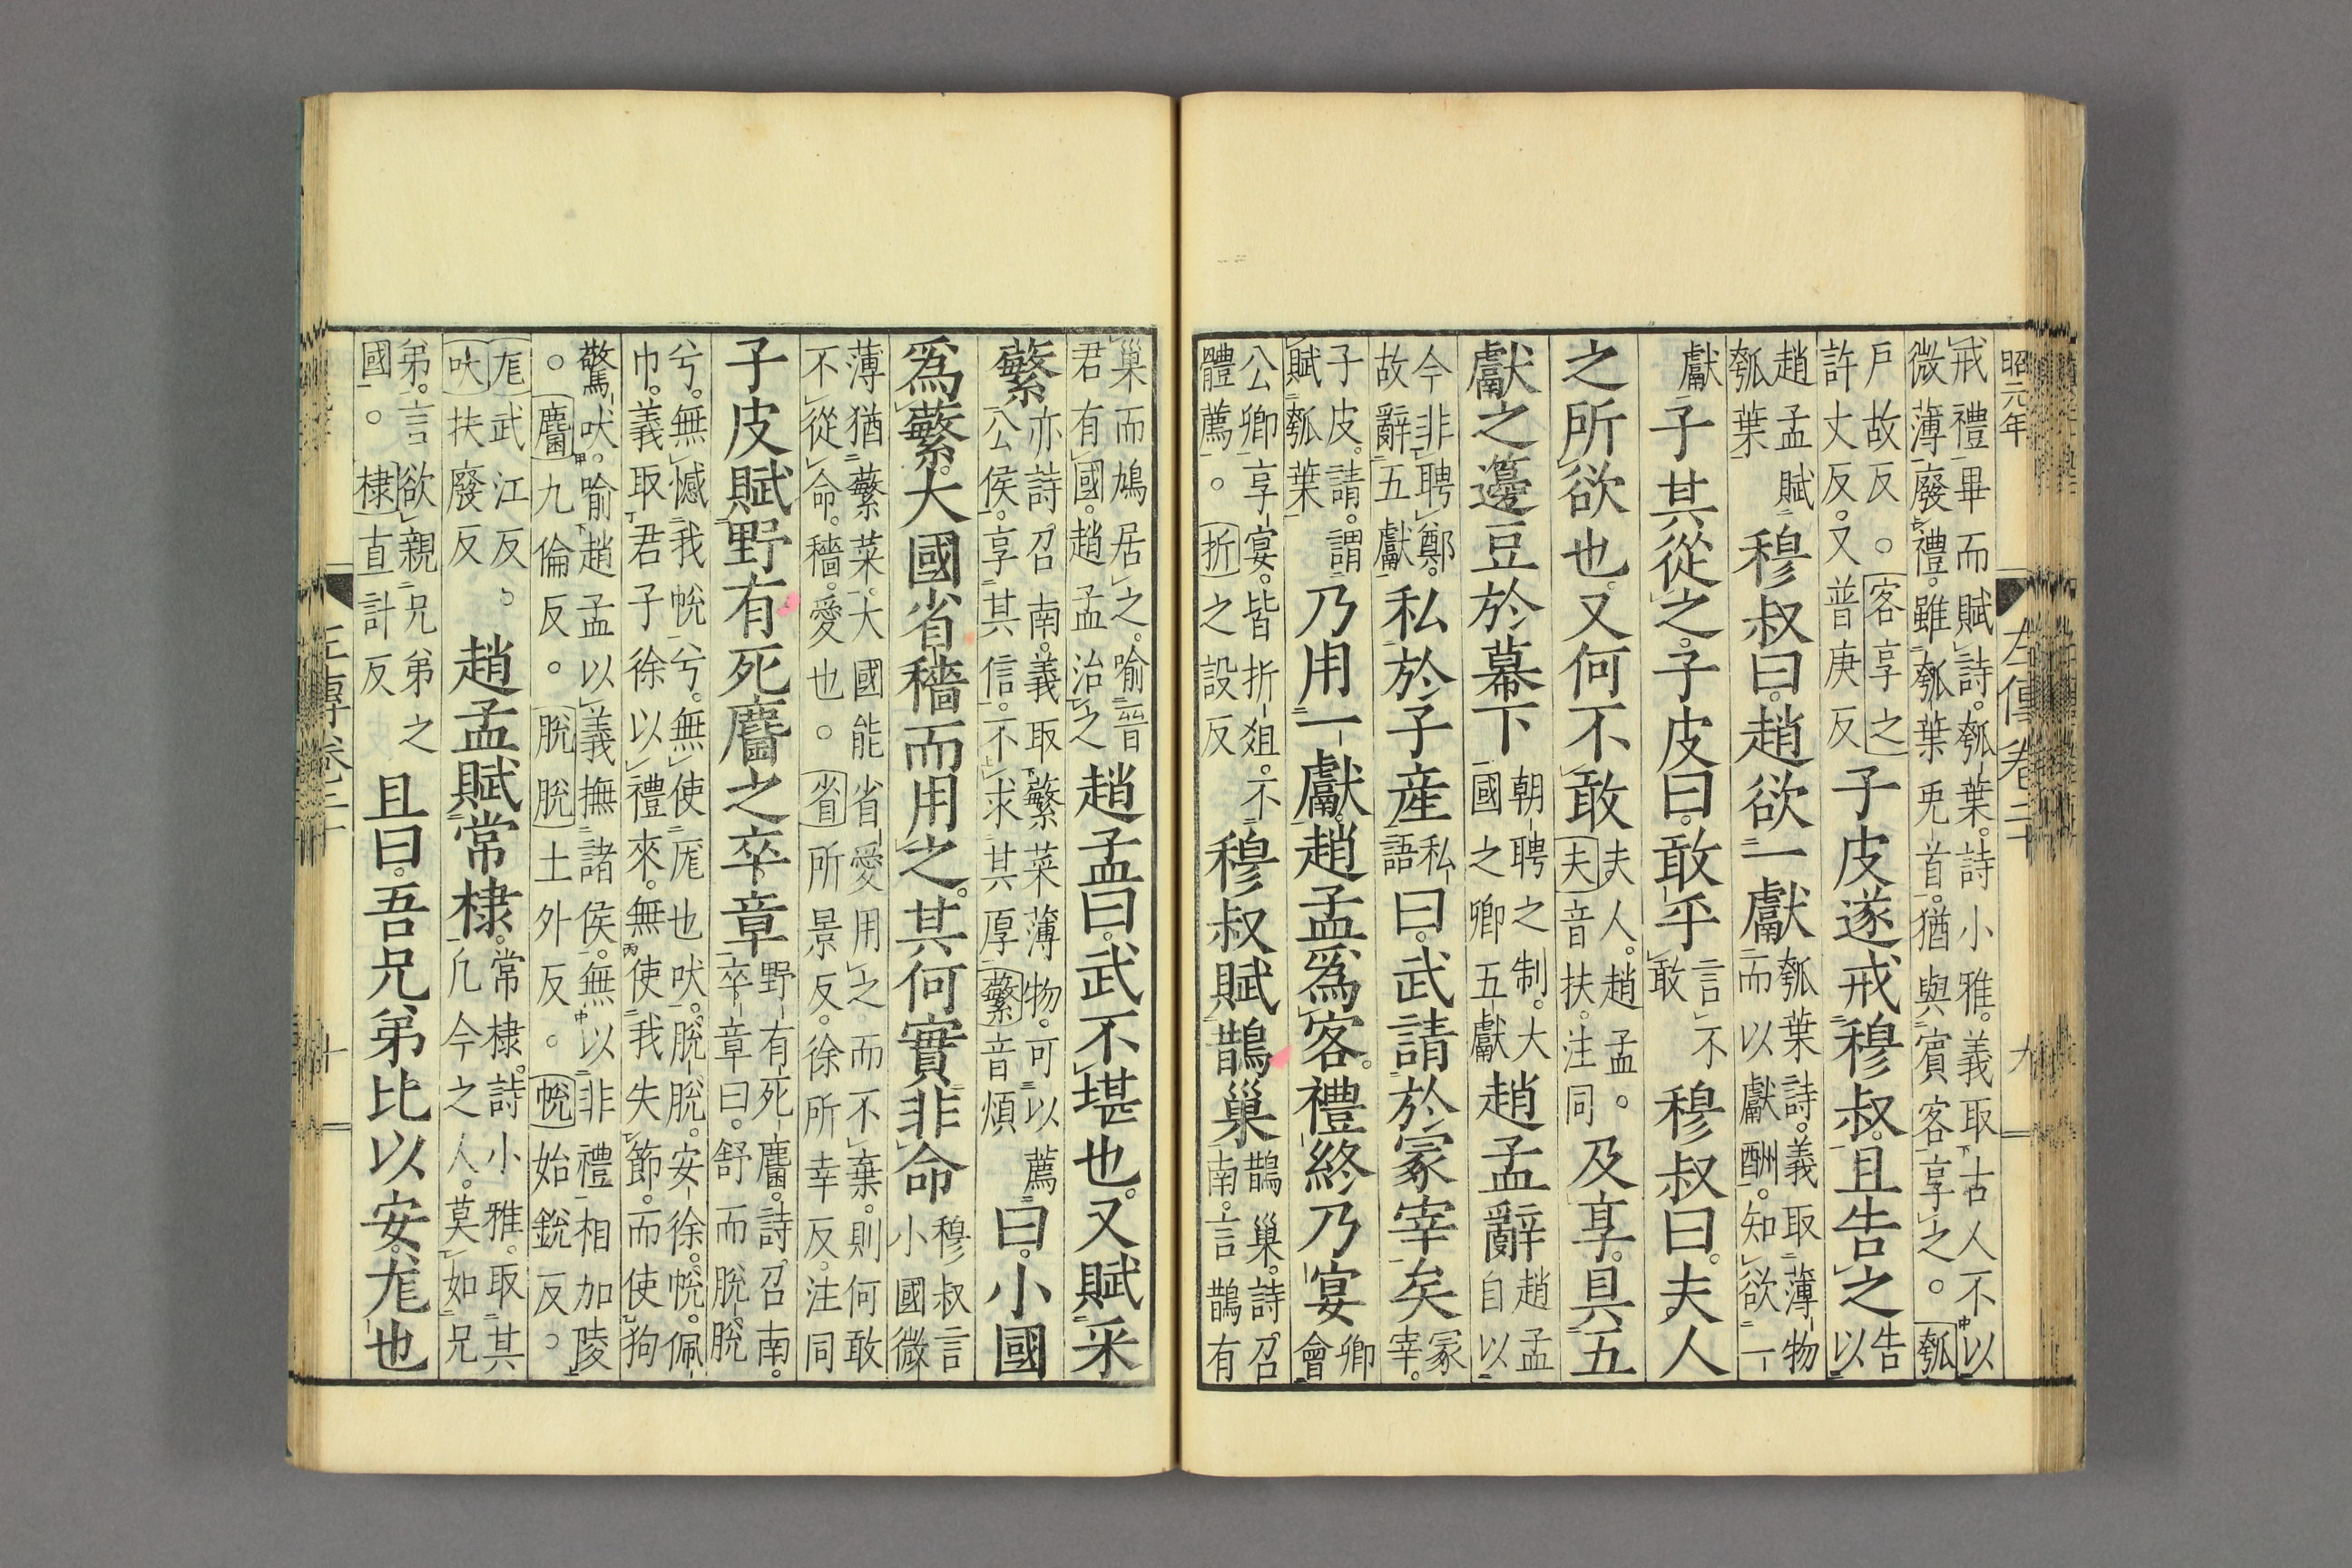 昭元年 左傳卷二十 九
戒禮畢而賦詩。瓠葉。詩小雅。義取古人不以
微薄廢禮。雖瓠葉兎首。猶與賓客享之。○瓠
戶故反。○客享之許丈反。又普庚反子皮遂戒穆叔。且告之告以
趙孟賦瓠葉穆叔曰。趙欲一獻瓠葉詩。義取薄物而以獻酬。知欲一
獻子其從之。子皮曰。敢乎言不敢穆叔曰。夫人
之所欲也。又何不敢夫人。趙孟。夫音扶。注同及享。具五
獻之籩豆於幕下朝聘之制。大國之卿五獻趙孟辭趙孟自以
今非聘鄭。故辭五獻私於子産私語曰。武請於冢宰矣冢宰。
子皮。請。謂賦瓠葉乃用一獻。趙孟爲客。禮終乃宴卿會
公卿享宴。皆折俎。不體薦。○折之設反穆叔賦鵲巢鵲巢。詩召南。言鵲有
巢而鳩居之。喻晉君有國。趙孟治之趙孟曰。武不堪也。又賦采
蘩亦詩召南。義取蘩菜薄物。可以薦公侯。享其信。不求其厚蘩音煩曰。小國
爲蘩。大國省穡而用之。其何實非命穆叔言小國微
薄猶蘩菜。大國能省愛用之。而不棄。則何敢
不從命。穡。愛也。○省所景反。徐所幸反。注同
子皮賦野有死麕之卒章野有死麕。詩召南。卒章曰。舒而脫脫
兮。無憾我帨兮。無使尨也吠。脫脫。安徐。帨。佩
巾。義取君子徐以禮來。無使我失節。而使狗
驚吠。喻趙孟以義撫諸侯。無以非禮相加陵
○麕九倫反。○脫脫土外反。○帨始銳反。○
尨武江反。○吠扶廢反趙孟賦常棣。常棣。詩小雅。取其凡今之人。莫如兄
弟。言欲親兄弟之國。○棣直計反且曰。吾兄弟比以安。尨也
左傳卷二十 十